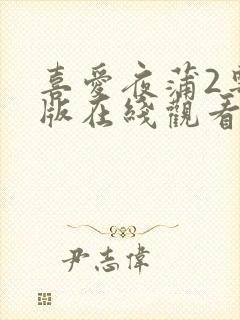 喜愛夜蒲2粵
版在綫觀看
尹志偉